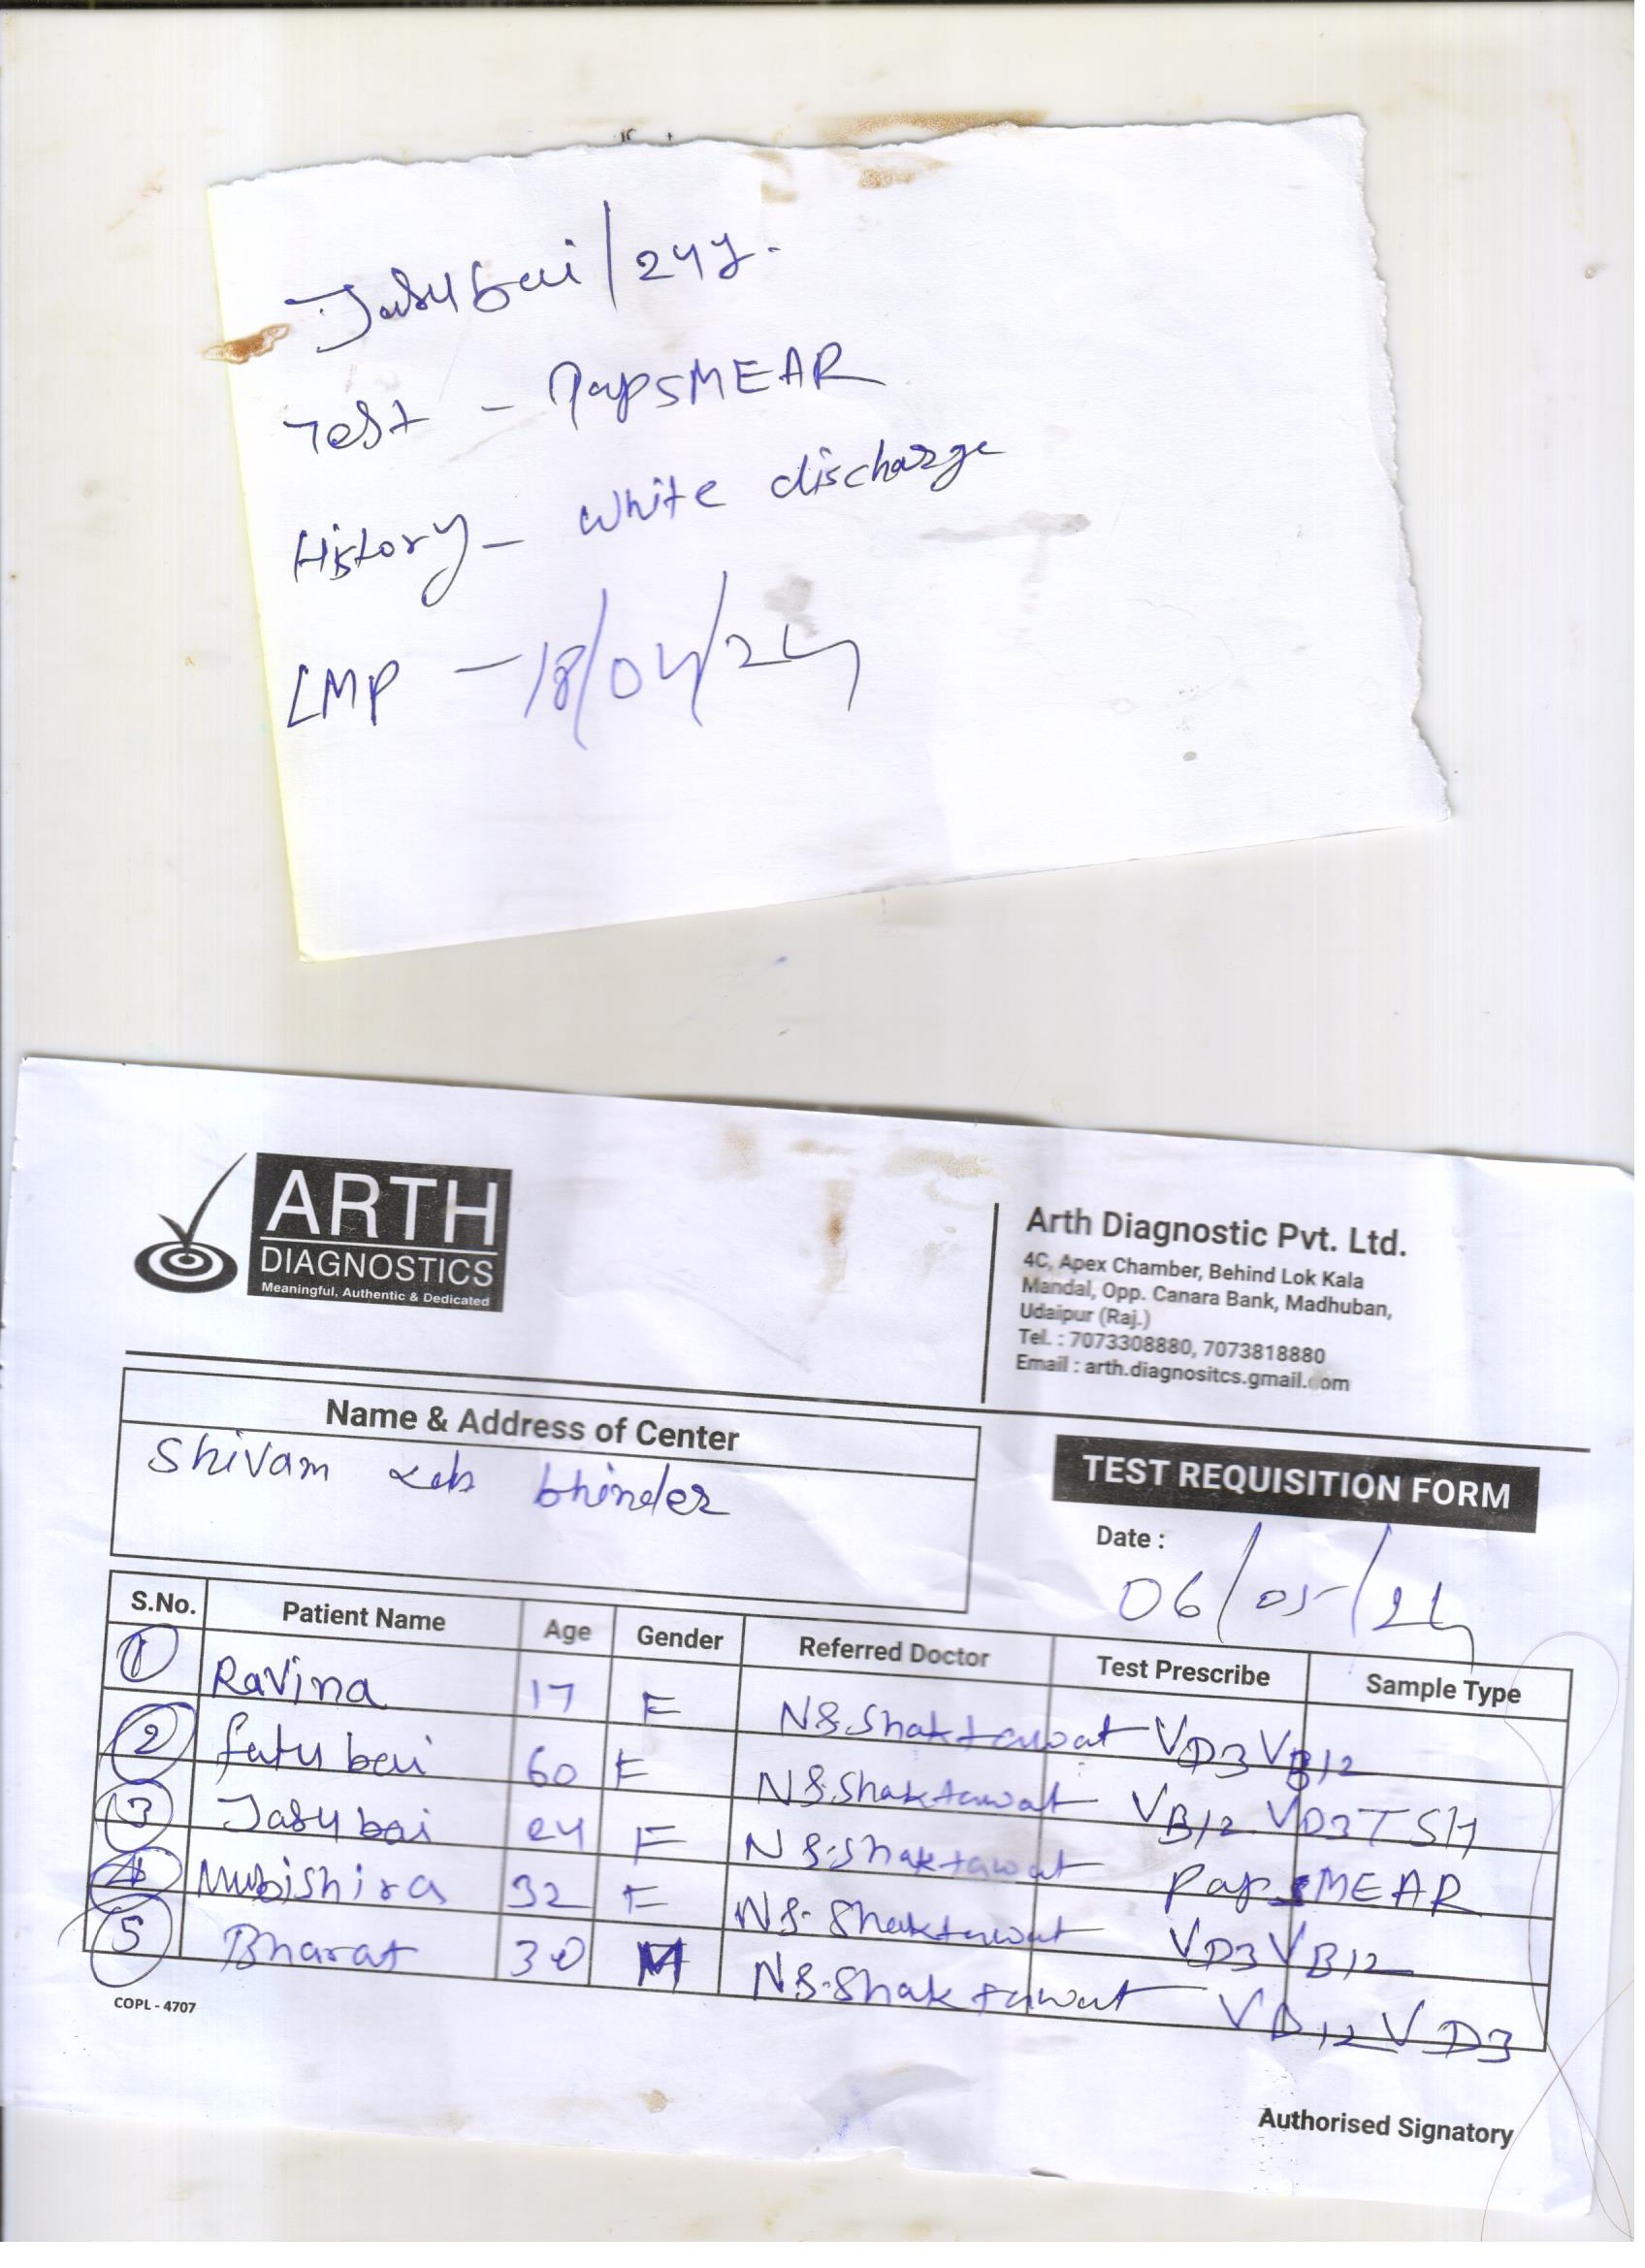 Jasubai/24y.
Test - PapSMEAR
History - White discharge
LMP - 18/04/24
ARTH
DIAGNOSTICS
Meaningful, Authentic & Dedicated
Arth Diagnostic Pvt. Ltd.
4C, Apex Chamber, Behind Lok Kala
Mandal, Opp. Canara Bank, Madhuban,
Udaipur (Raj.)
Tel. : 7073308880, 7073818880
Email : arth.diagnositcs.gmail.com
Name & Address of Center
Shivam Lab bhinder
TEST REQUISITION FORM
Date :
06/05/24
S.No. Patient Name Age Gender Referred Doctor Test Prescribe Sample Type
1 Ravina 17 F NS.Shaktawat VD3 VB12
2 fatu bai 60 F NS.Shaktawat VB12 VD3 TSH
3 Jasu bai 24 F NS.Shaktawat PapSMEAR
4 Mubishira 32 F NS.Shaktawat VD3 VB12
5 Bharat 30 M NS.Shaktawat VB12 VD3
COPL - 4707
Authorised Signatory